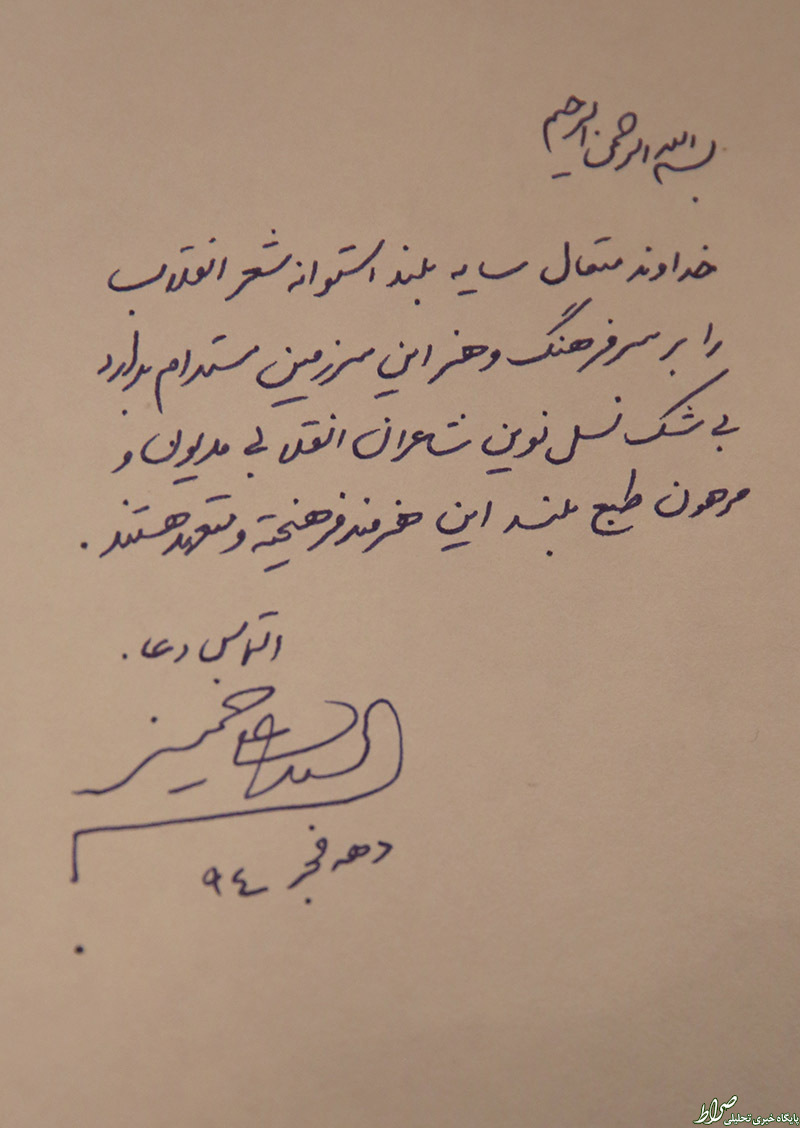 بسم الله الرحمن الرحیم
خداوند متعال سایه بلند استوانه شعر انقلاب
را بر سر فرهنگ و هنر این سرزمین مستدام بدارد
بی شک نسل نوین شاعران انقلابی مدیون و
مرهون طبع بلند این هنرمند فرهیخته و متعهد هستند.
التماس دعا.
خمینی
دهه فجر ۹٤
صراط
پایگاه خبری تحلیلی